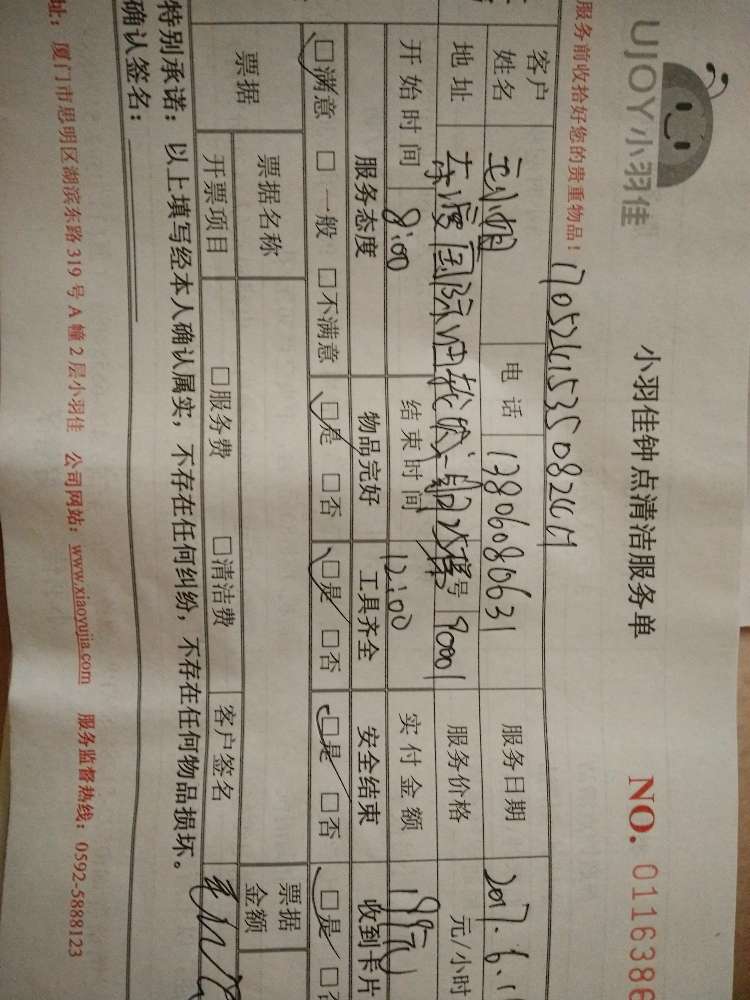 UJOY小羽佳
小羽佳钟点清洁服务单
NO. 0116386
服务前收拾好您的贵重物品！
客户姓名 电话 13806080631 服务日期 2017.6.1
地址 号 90001 服务价格 元/小时
开始时间 8:00 结束时间 12:00 实付金额
服务态度 物品完好 工具齐全 安全结束 收到卡片
□满意 □一般 □不满意 □是 □否 □是 □否 □是 □否 □是 □否
票据 票据名称 票据金额
开票项目 □服务费 □清洁费 客户签名
特别承诺：以上填写经本人确认属实，不存在任何纠纷，不存在任何物品损坏。
确认签名：
址：厦门市思明区湖滨东路319号A幢2层小羽佳 公司网站：www.xiaoyujia.com 服务监督热线：0592-5888123